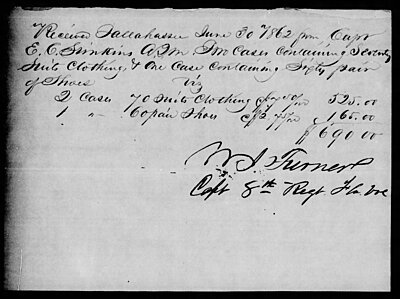 Received Tallahassee June 30th 1862 from Capt
E. C. Simkins A.Q.M. Two Cases Containing Seventy
Suits Clothing & One Case Containing Sixty pair
of Shoes viz
2 Cases 70 Suits Clothing @ 7 50/00 525.00
1 " 60 pair Shoes @ 2 75/00 165.00
$690.00
W. J. Turner
Capt 8th Regt Fla Vol